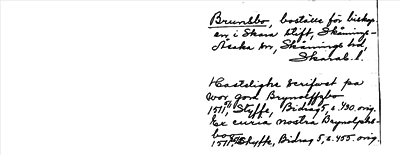 Brunsbo, boställe för biskop-
en i Skara stift, Skånings-
Åsaka sn, Skånings hd,
Skarab. l.
Hastelighe screfwet pa
wor gord Brynolffzbo
1511, Styffe, Bidrag 5, s. 430. orig.
Ex curia nostra Brynolphs-
bo 1511, Styffe, Bidrag 5, s. 455. orig.